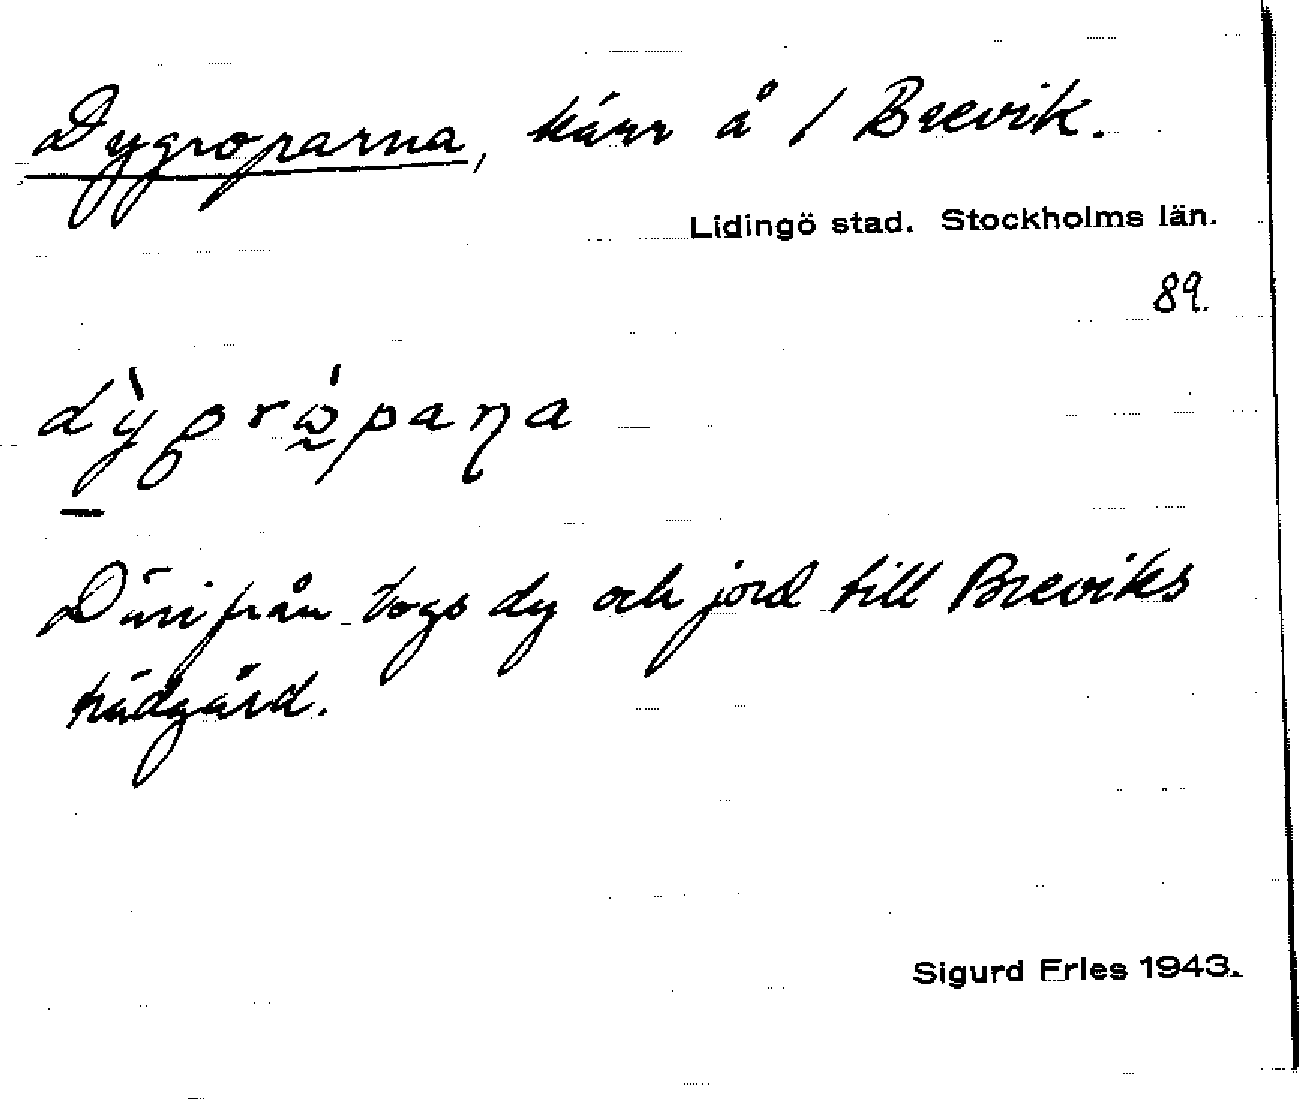 Dygroparna, kärr å / Brevik.
Lidingö stad. Stockholms län.
89.
dỳ̖grò̰paṇa
Därifrån togs dy och jord till Breviks
trädgård.
Sigurd Fries 1943.